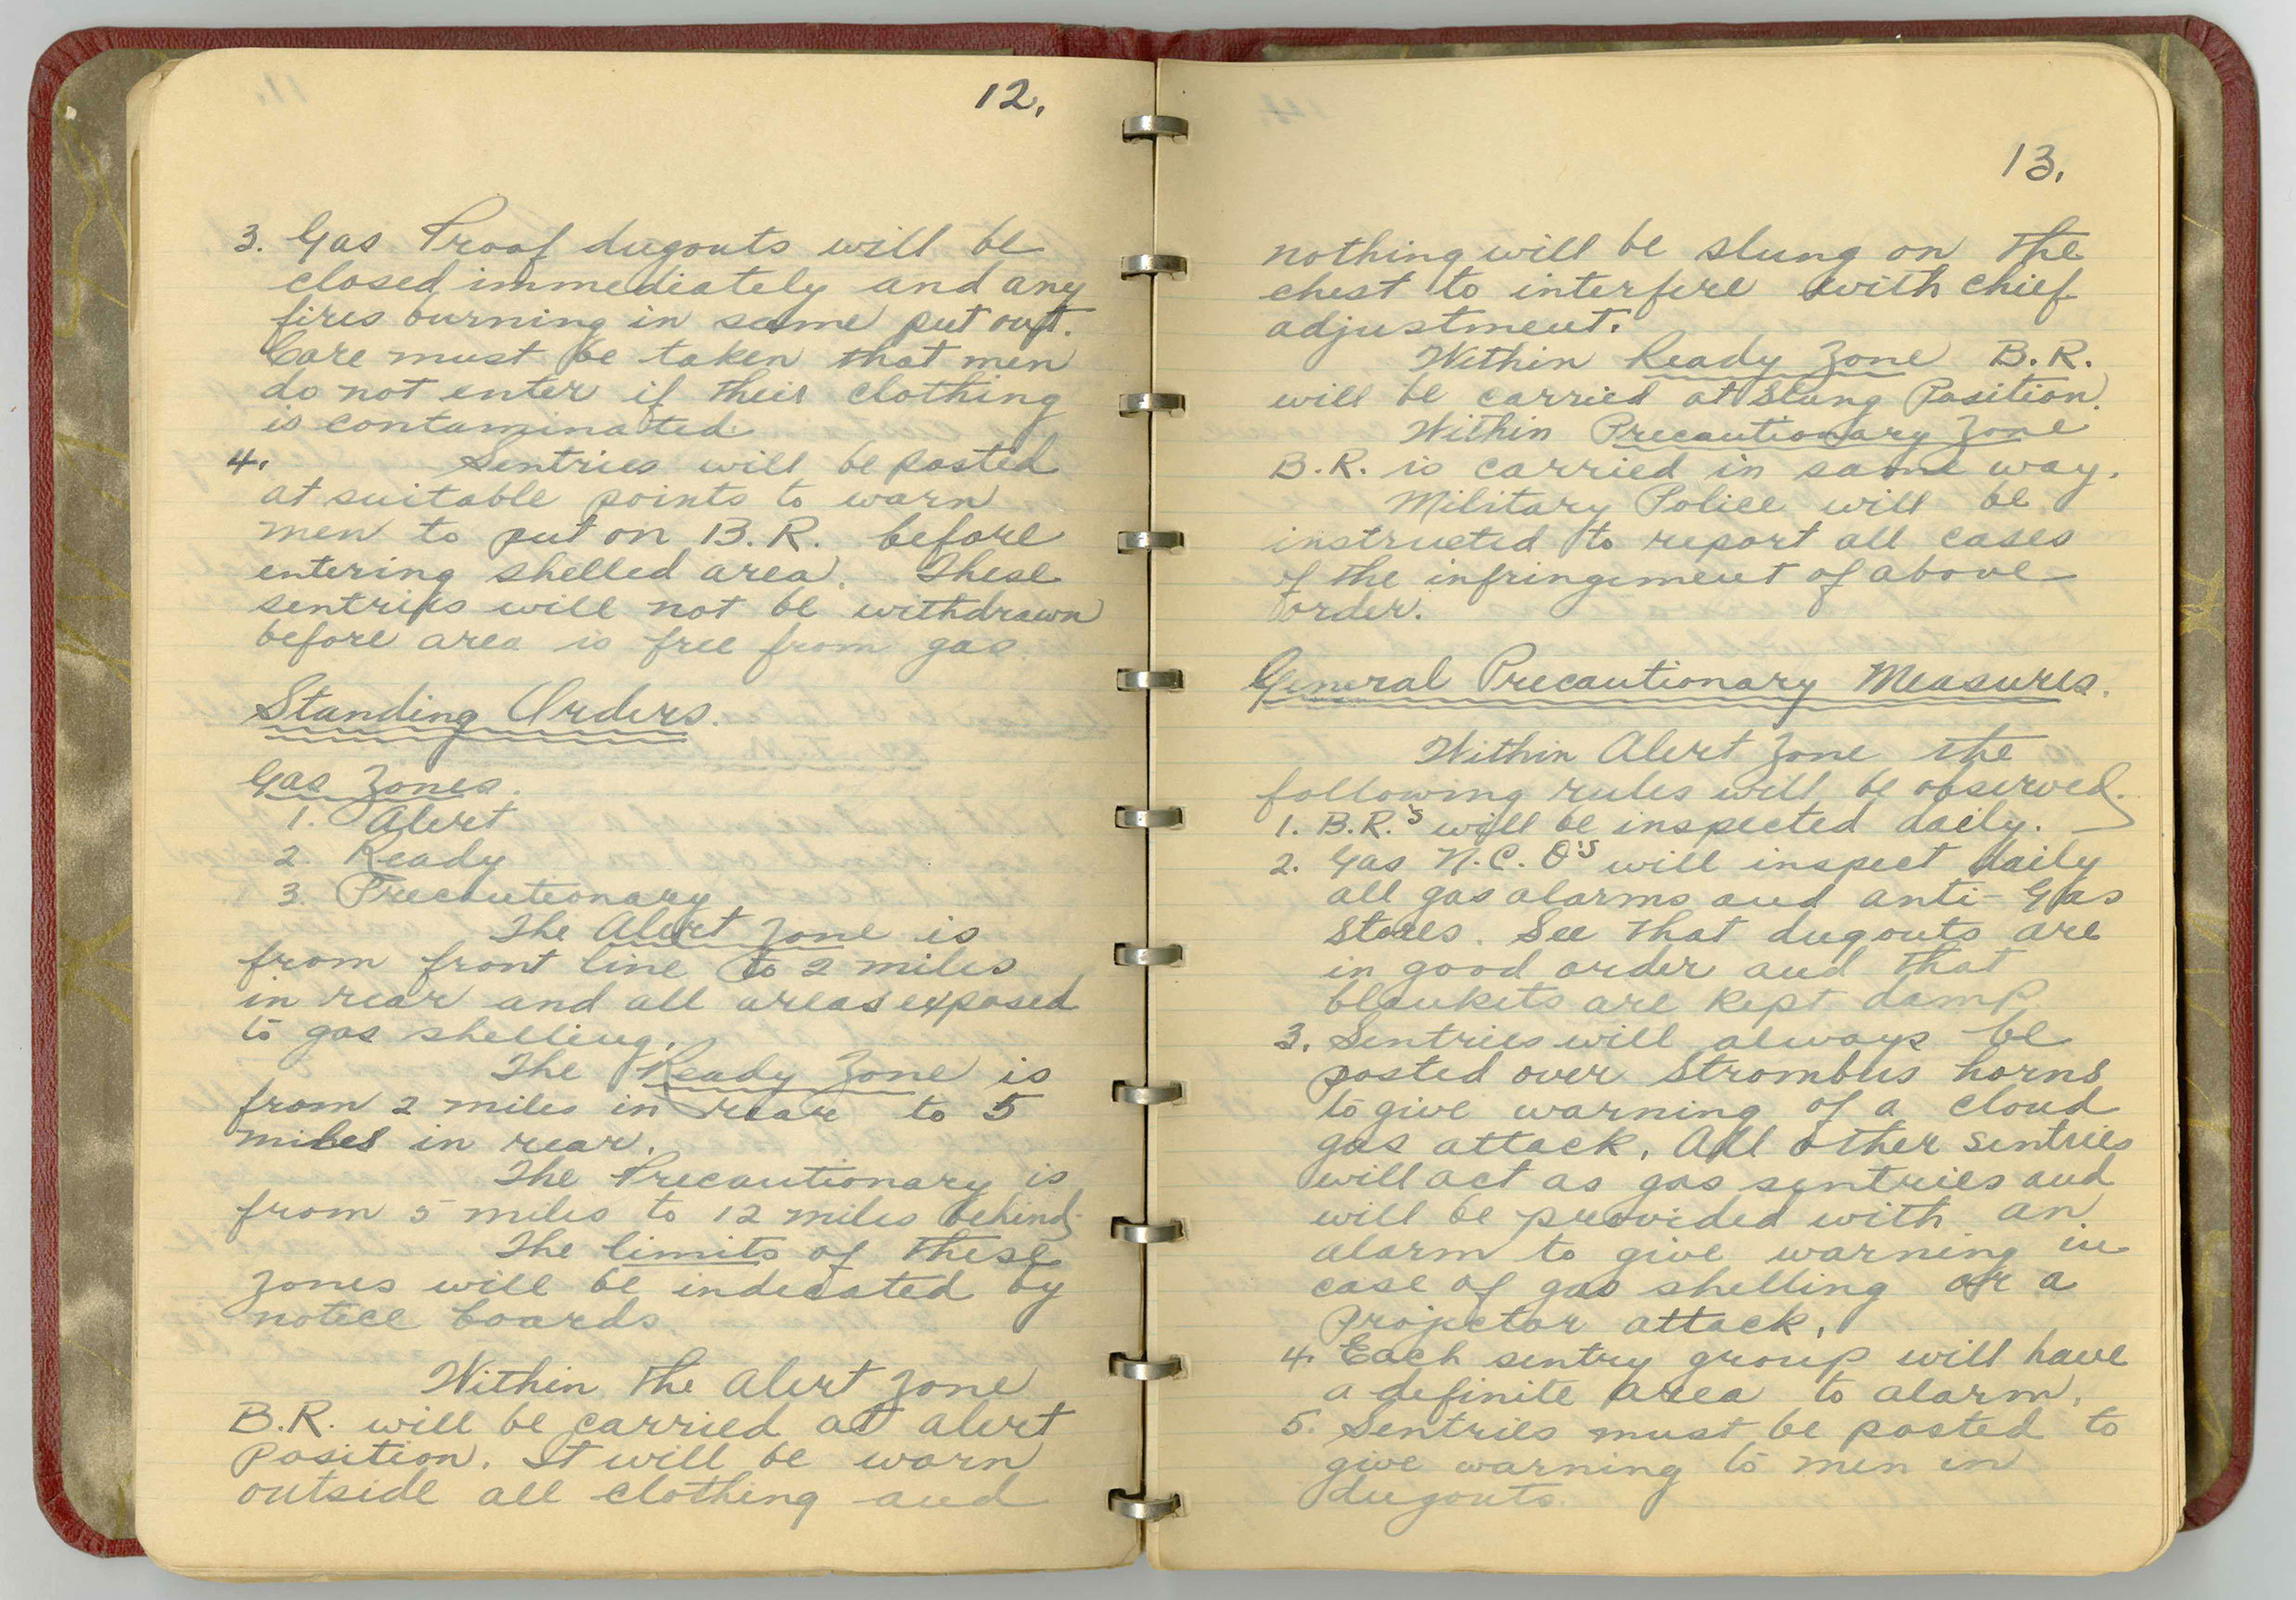 12.
3. Gas Proof dugouts will be
closed immediately and any
fires burning in same put out.
Care must be taken that men
do not enter if their clothing
is contaminated.
4. Sentries will be posted
at suitable points to warn
men to put on B.R. before
entering shelled area. These
sentries will not be withdrawn
before area is free from gas.
Standing Orders.
Gas Zones.
1. Alert
2. Ready
3 Precautionary
The Alert Zone is
from front line to 2 miles
in rear and all areas exposed
to gas shelling.
The Ready Zone is
from 2 miles in rear to 5
miles in rear.
The Precautionary is
from 5 miles to 12 miles behind.
The limits of these
zones will be indicated by
notice boards.
Within the Alert Zone
B.R. will be carried at alert
Position. It will be worn
outside all clothing and
13.
nothing will be slung on the
chest to interfere with chief
adjustment.
Within Ready Zone B.R.
will be carried at Slung Position.
Within Precautionary Zone
B.R. is carried in same way.
Military Police will be
instructed to report all cases
of the infringement of above
order.
General Precautionary Measures.
Within Alert Zone the
following rules will be observed.
1. B.R.'s will be inspected daily.
2. Gas N.C.O's will inspect daily
all gas alarms and anti-Gas
Stores. See that dugouts are
in good order and that
blankets are kept damp
3. Sentries will always be
posted over Strombus horns
to give warning of a cloud
gas attack. All other sentries
will act as gas sentries and
will be provided with an
alarm to give warning in
case of gas shelling or a
projector attack.
4. Each sentry group will have
a definite area to alarm.
5. Sentries must be posted to
give warning to men in
dugouts.